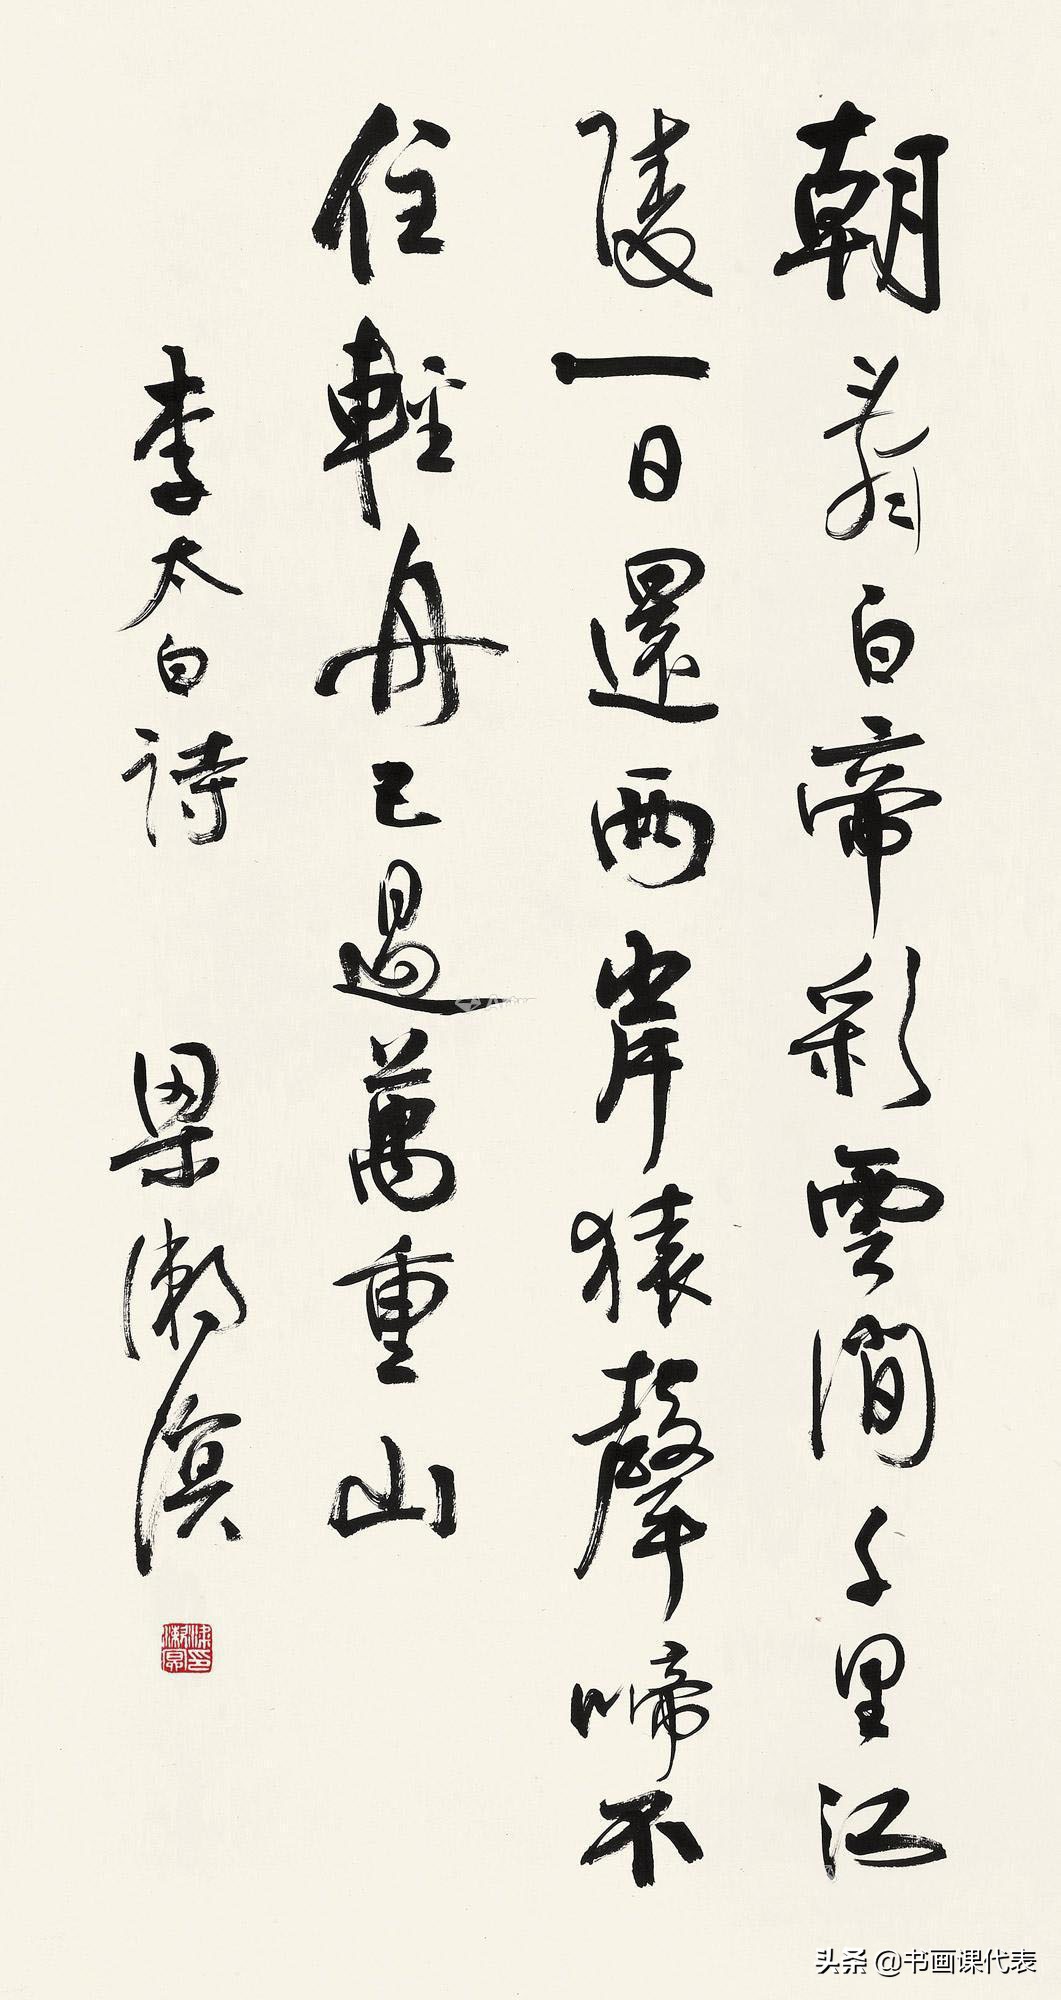 朝白帝彩雲間千里江
陵一日還兩岸猿聲啼不
住輕舟已過萬重山
李太白詩 梁漱溟
头条 @书画课代表